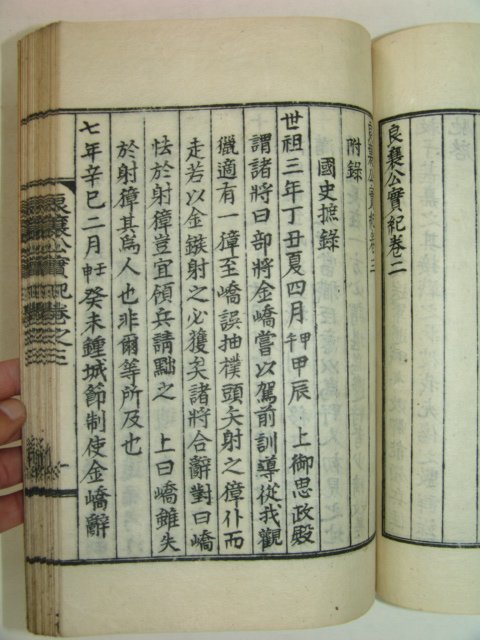 良襄公實紀卷二
良襄公實紀卷三
附錄
國史摭錄
世祖三年丁丑夏四月甲午甲辰 上御思政殿
謂諸將曰部將金嶠嘗以駕前訓導從我觀
獵適有一獐至嶠誤抽樸頭矢射之獐仆而
走若以金鏃射之必獲矣諸將合辭對曰嶠
怯於射獐豈宜領兵請黜之 上曰嶠雖失
於射獐其爲人也非爾等所及也
七年辛巳二月壬午癸未鍾城節制使金嶠辭
良襄公實紀卷之三
一